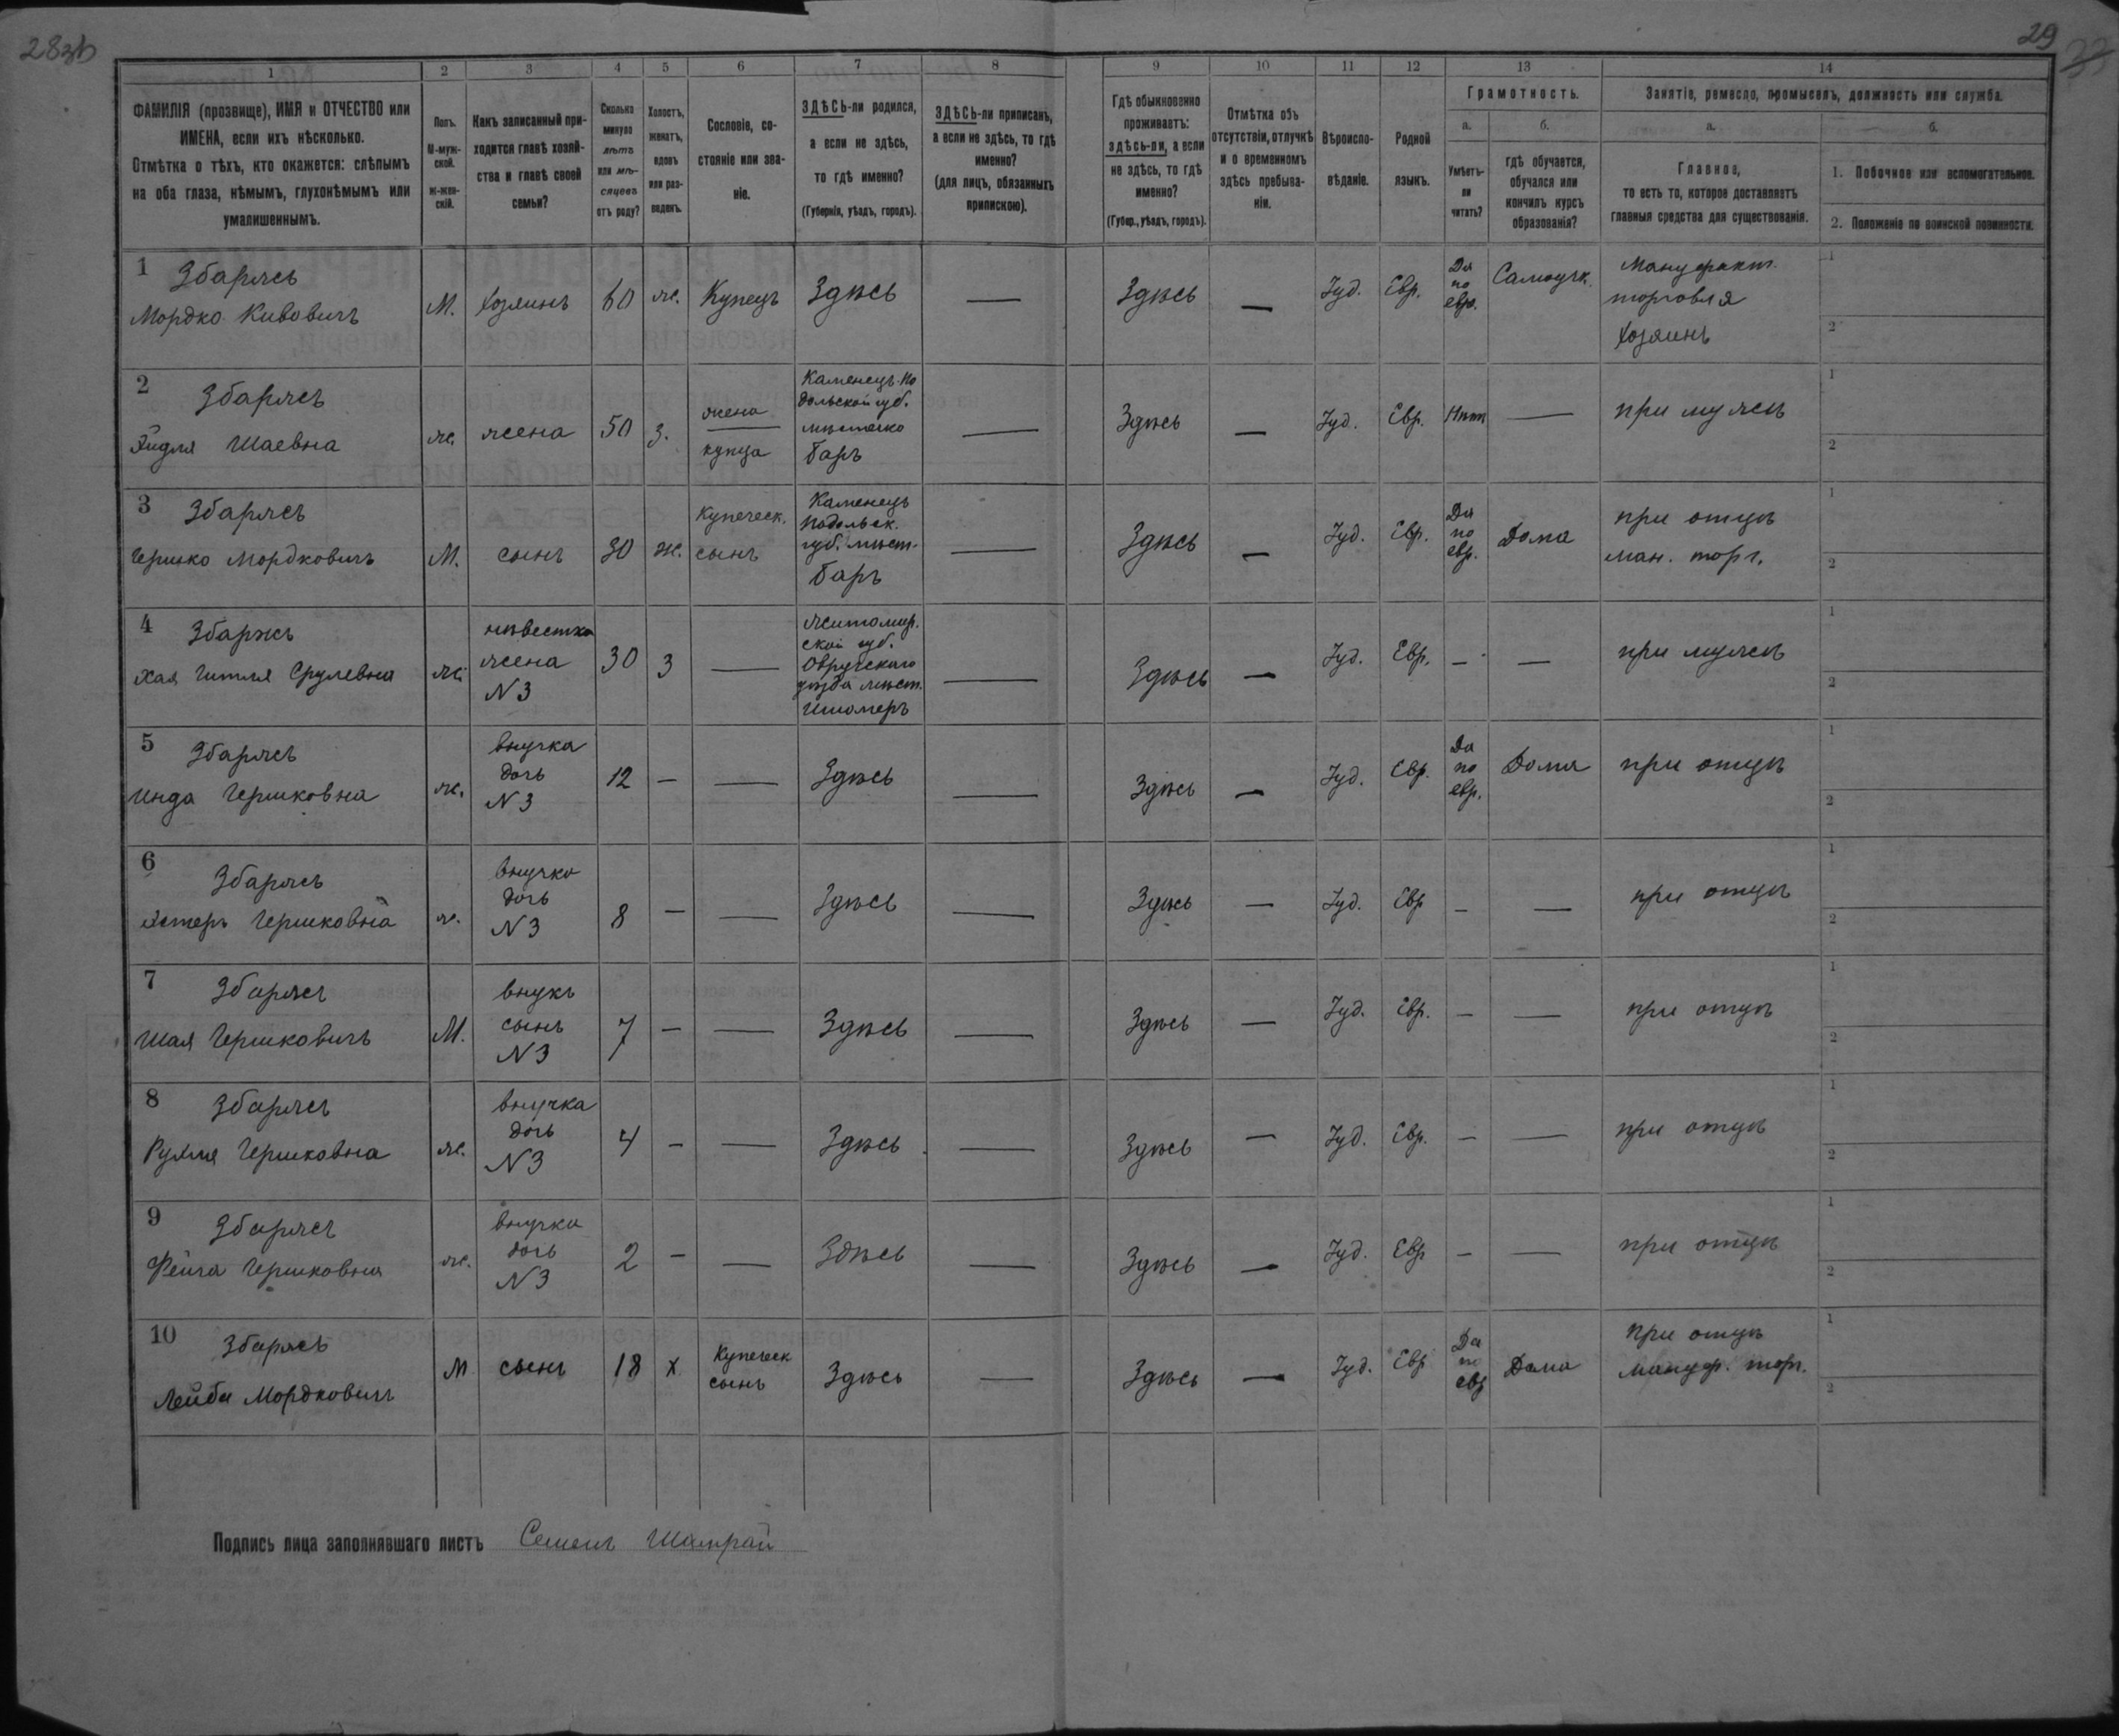 283ъ
29
33
1 2 3 4 5 6 7 8 9 10 11 12 13 14
ФАМИЛІЯ (прозвище), ИМЯ и ОТЧЕСТВО или
ИМЕНА, если ихъ нѣсколько.
Отмѣтка о тѣхъ, кто окажется: слѣпымъ
на оба глаза, нѣмымъ, глухонѣмымъ или
умалишеннымъ.
Полъ.
М-муж-
ской.
Ж-жен-
скій.
Какъ записанный при-
ходится главѣ хозяй-
ства и главѣ своей
семьи?
Сколько
минуло
лѣтъ
или мѣ-
сяцевъ
отъ роду?
Холостъ,
женатъ,
вдовъ
или раз-
веденъ.
Сословіе, со-
стояніе или зва-
ніе.
ЗДѢСЬ-ли родился,
а если не здѣсь,
то гдѣ именно?
(Губернія, уѣздъ, городъ).
ЗДѢСЬ-ли приписанъ,
а если не здѣсь, то гдѣ
именно?
(для лицъ, обязанныхъ
припискою).
Гдѣ обыкновенно
проживаетъ:
здѣсь-ли, а если
не здѣсь, то гдѣ
именно?
(Губер., уѣздъ, городъ).
Отмѣтка объ
отсутствіи, отлучкѣ
и о временномъ
здѣсь пребыва-
ніи.
Вѣроиспо-
вѣданіе.
Родной
языкъ.
Грамотность.
а.
Умѣетъ-
ли
читать?
б.
гдѣ обучается,
обучался или
кончилъ курсъ
образованія?
Занятіе, ремесло, промыселъ, должность или служба.
а.
Главное,
то есть то, которое доставляетъ
главныя средства для существованія.
б.
1. Побочное или вспомогательное.
2. Положеніе по воинской повинности.
1
Збаржъ
Мордко Кивовичъ
М.
Хозяинъ
60
ж.
Купецъ
Здѣсь
—
Здѣсь
—
Іуд.
Евр.
Да
по
евр.
Самоучк.
Мануфакт.
торговля
Хозяинъ
1
2
2
Збаржъ
Эйдля Шаевна
ж.
жена
50
з.
жена
купца
Каменецъ-По
дольской губ.
мѣстечко
Баръ
—
Здѣсь
—
Іуд.
Евр.
Нѣтъ
—
при мужѣ
1
2
3
Збаржъ
Гершко Мордковичъ
М.
сынъ
30
ж.
Купеческ.
сынъ
Каменецъ
Подольск.
губ. мѣст.
Баръ
—
Здѣсь
—
Іуд.
Евр.
Да
по
евр.
Дома
при отцѣ
ман. торг.
1
2
4
Збаржъ
Хая Гитля Срулевна
ж.
невѣстка
жена
N 3
30
з
—
Житомир.
ской губ.
Овручскаго
уѣзда мѣст.
—
Здѣсь
—
Іуд.
Евр.
—
—
при мужѣ
1
2
5
Збаржъ
Инда Гершковна
ж.
внучка
дочь
N 3
12
—
—
Здѣсь
—
Здѣсь
—
Іуд.
Евр.
Да
по
евр.
Дома
при отцѣ
1
2
6
Збаржъ
Эстеръ Гершковна
ж.
внучка
дочь
N 3
8
—
—
Здѣсь
—
Здѣсь
—
Іуд.
Евр
—
—
при отцѣ
1
2
7
Збаржъ
Шая Гершковичъ
М.
внукъ
сынъ
N 3
7
—
—
Здѣсь
—
Здѣсь
—
Іуд.
Евр.
—
—
при отцѣ
1
2
8
Збаржъ
Рухля Гершковна
ж.
внучка
дочь
N 3
4
—
—
Здѣсь
—
Здѣсь
—
Іуд.
Евр.
—
—
при отцѣ
1
2
9
Збаржъ
Фейга Гершковна
ж.
внучка
дочь
N 3
2
—
—
Здѣсь
—
Здѣсь
—
Іуд.
Евр
—
—
при отцѣ
1
2
10
Збаржъ
Лейба Мордковичъ
М
сынъ
18
х
Купеческ
сынъ
Здѣсь
—
Здѣсь
—
Іуд.
Евр
Да
по
евр
Дома
при отцѣ
мануф. торг.
1
2
Подпись лица заполнявшаго листъ Семенъ Шамрай